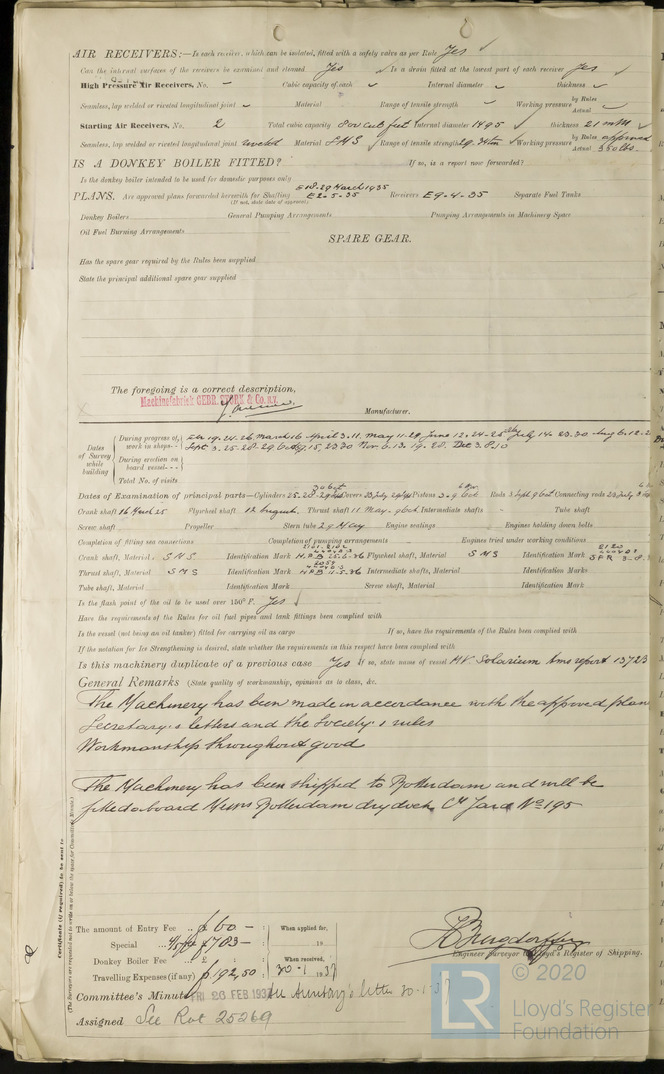 AIR RECEIVERS:—Is each receiver, which can be isolated, fitted with a safety valve as per Rule Yes ✓
Can the internal surfaces of the receivers be examined and cleaned Yes ✓ Is a drain fitted at the lowest part of each receiver Yes ✓
High Pressure Air Receivers, No. – Cubic capacity of each ✓ Internal diameter – thickness ✓
Seamless, lap welded or riveted longitudinal joint Material Range of tensile strength – Working pressure by Rules Actual
Starting Air Receivers, No. 2 Total cubic capacity 800 cub feet Internal diameter 1495 ✓ thickness 21 mM
Seamless, lap welded or riveted longitudinal joint riveted Material SMS Range of tensile strength 29.34 tm Working pressure by Rules approved Actual 350 lbs.
IS A DONKEY BOILER FITTED? If so, is a report now forwarded?
Is the donkey boiler intended to be used for domestic purposes only
PLANS. Are approved plans forwarded herewith for Shafting E18-29 March 1935 E2-5-35 Receivers E9-4-35 Separate Fuel Tanks
(If not, state date of approval)
Donkey Boilers General Pumping Arrangements Pumping Arrangements in Machinery Space
Oil Fuel Burning Arrangements
SPARE GEAR.
Has the spare gear required by the Rules been supplied
State the principal additional spare gear supplied
The foregoing is a correct description,
Machinefabriek GEBR. STORK & Co. N.V.
Manufacturer.
Dates of Survey while building
During progress of work in shops--
During erection on board vessel---
Total No. of visits
Dates of Examination of principal parts—Cylinders Covers Pistons Rods Connecting rods
Crank shaft 16 March 25 Flywheel shaft 12 August. Thrust shaft 11 May. 9 Oct Intermediate shafts Tube shaft
Screw shaft Propeller Stern tube 29 May Engine seatings Engines holding down bolts
Completion of fitting sea connections Completion of pumping arrangements Engines tried under working conditions
Crank shaft, Material SMS Identification Mark HPB 25-6-36 Flywheel shaft, Material SMS Identification Mark
Thrust shaft, Material SMS Identification Mark HPB 11-5-36 Intermediate shafts, Material Identification Marks
Tube shaft, Material Identification Mark Screw shaft, Material Identification Mark
Is the flash point of the oil to be used over 150° F. Yes
Have the requirements of the Rules for oil fuel pipes and tank fittings been complied with
Is the vessel (not being an oil tanker) fitted for carrying oil as cargo If so, have the requirements of the Rules been complied with
If the notation for Ice Strengthening is desired, state whether the requirements in this respect have been complied with
Is this machinery duplicate of a previous case Yes If so, state name of vessel M.V. Solarium Ams report 13723
General Remarks (State quality of workmanship, opinions as to class, &c.
The Machinery has been made in accordance with the approved plan
Secretary's letters and the Society's rules
Workmanship throughout good
The Machinery has been shipped to Rotterdam and will be
fitted aboard Messrs Rotterdam drydock Cy Yard No 195
Certificate (if required) to be sent to
(The Surveyors are requested not to write on or below the space for Committee's Minute.)
The amount of Entry Fee .. 60 – : When applied for,
Special ... 4/5 703 – : 19
Donkey Boiler Fee ... £ : : When received,
Travelling Expenses (if any) 192,50 : 30-1 1937
Engineer Surveyor to Lloyd's Register of Shipping.
Committee's Minute FRI 26 FEB 1937 See Secretary's letter 30-1-37
Assigned See Rot 25269
LR
© 2020
Lloyd's Register
Foundation